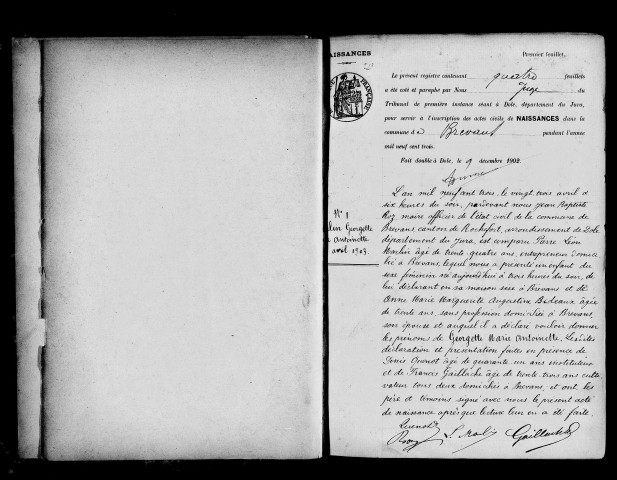 NAISSANCES
Premier feuillet.
Le présent registre contenant quatre feuillets
a été coté et paraphé par Nous Juge du
Tribunal de première instance séant à Dole, département du Jura,
pour servir à l'inscription des actes civils de NAISSANCES dans la
commune de Brevans pendant l'année
mil neuf cent trois.
Fait double à Dole, le 9 décembre 1902.
N° 1
Georgette
Antoinette
avril 1903.
L'an mil neuf cent trois, le vingt trois avril à
six heures du soir, pardevant nous Jean Baptiste
Roz, maire officier de l'état civil de la commune de
Brevans canton de Rochefort, arrondissement de Dole
département du Jura, est comparu Pierre Léon
âgé de trente quatre ans, entrepreneur domici
lié à Brevans, lequel nous a présenté un enfant du
sexe féminin né aujourd'hui à trois heures du soir, de
lui déclarant en sa maison sise à Brevans et de
Anne Marie Marguerite Augustine Bideaux âgée
de trente ans, sans profession domiciliée à Brevans,
son épouse et auquel il a déclaré vouloir donner
les prénoms de Georgette Marie Antoinette. Lesdites
déclaration et présentation faites en présence de
Denis Quenot âgé de quarante un ans instituteur
et de Francis Gaillard âgé de trente trois ans culti
vateur tous deux domiciliés à Brevans, et ont les
père et témoins signé avec nous le présent acte
de naissance après que lecture leur en a été faite.
Quenot
Roz